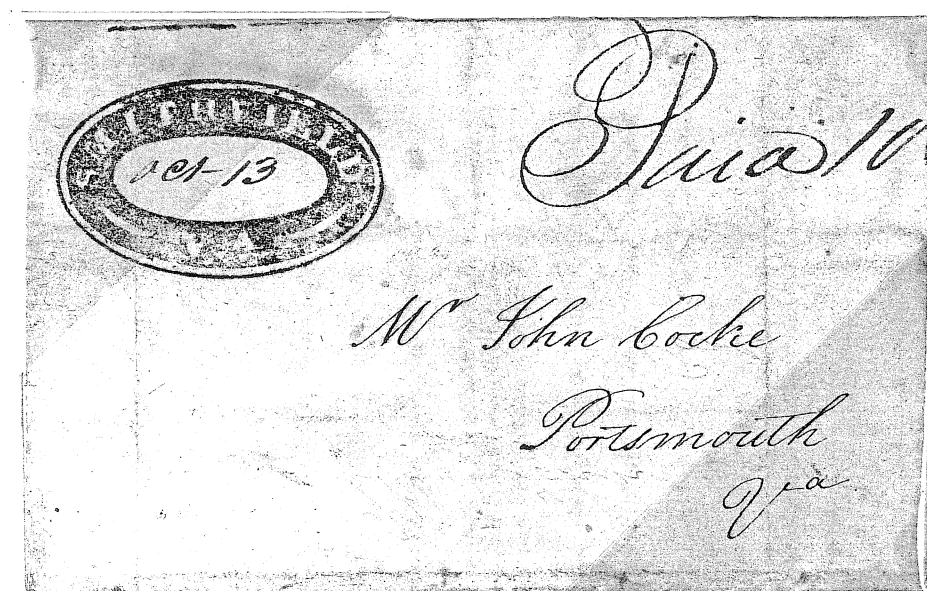 SMITHFIELD
Oct 13
VA.
Paid 10
Mr John Cocke
Portsmouth
Va